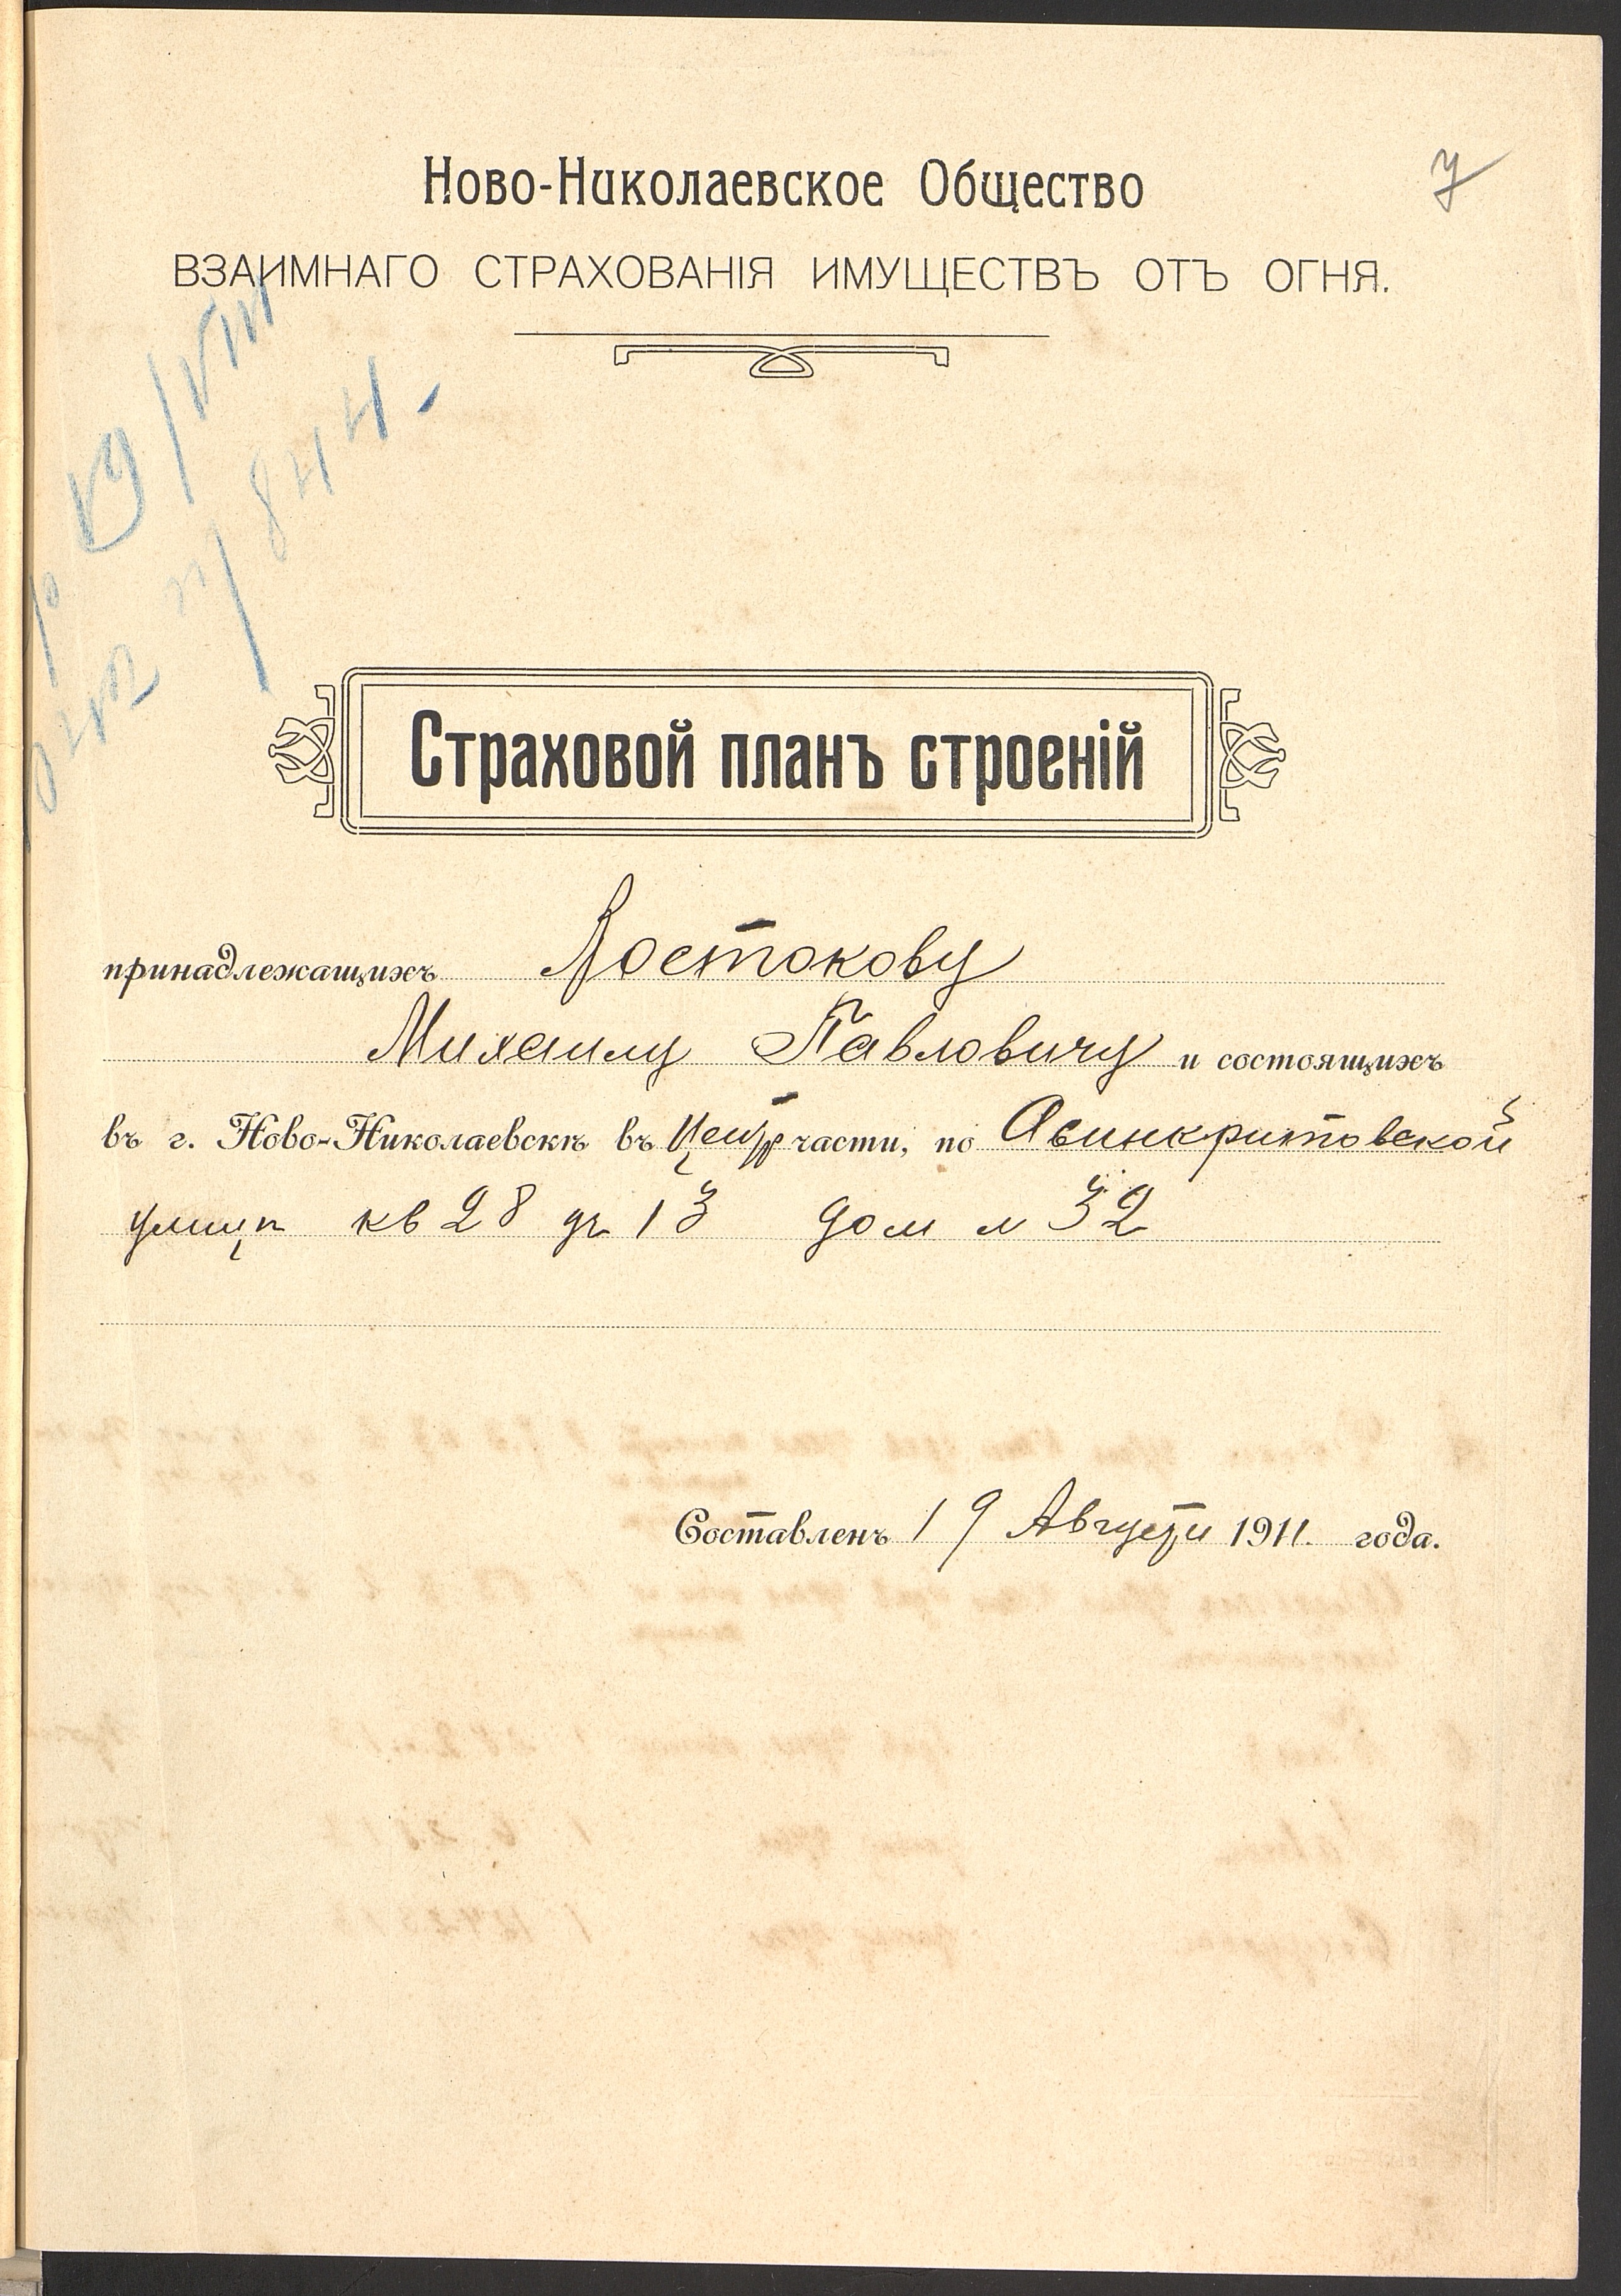 7
Ново-Николаевское Общество
ВЗАИМНАГО СТРАХОВАНІЯ ИМУЩЕСТВЪ ОТЪ ОГНЯ.
19/VIII
844.
Страховой планъ строеній
принадлежащихъ Востокову
Михаилу Павловичу и состоящихъ
въ г. Ново-Николаевскѣ въ Центр части, по Асинкритовской
улицѣ кв 28 уч 13 дом № 32
Составленъ 19 Августа 1911. года.